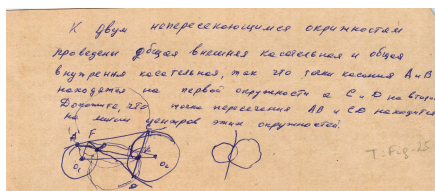 К двум непересекающимся окружностям
проведены общая внешняя касательная и общая
внутренняя касательная, так что точки касания A и B
находятся на первой окружности а C и D на второй.
Докажите, что точка пересечения AB и CD находится
на линии центров этих окружностей.
A F
O₁ O₂
D